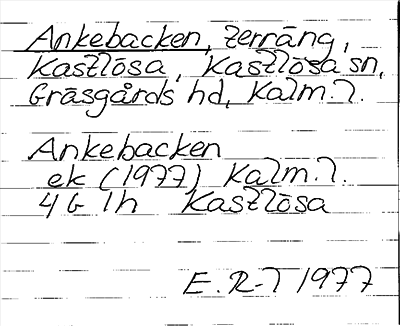 Ankebacken, terräng,
Kastlösa, Kastlösa sn,
Gräsgårds hd, Kalm. l.
Ankebacken
ek (1977) Kalm. l.
4G 1h Kastlösa
E. R-T 1977